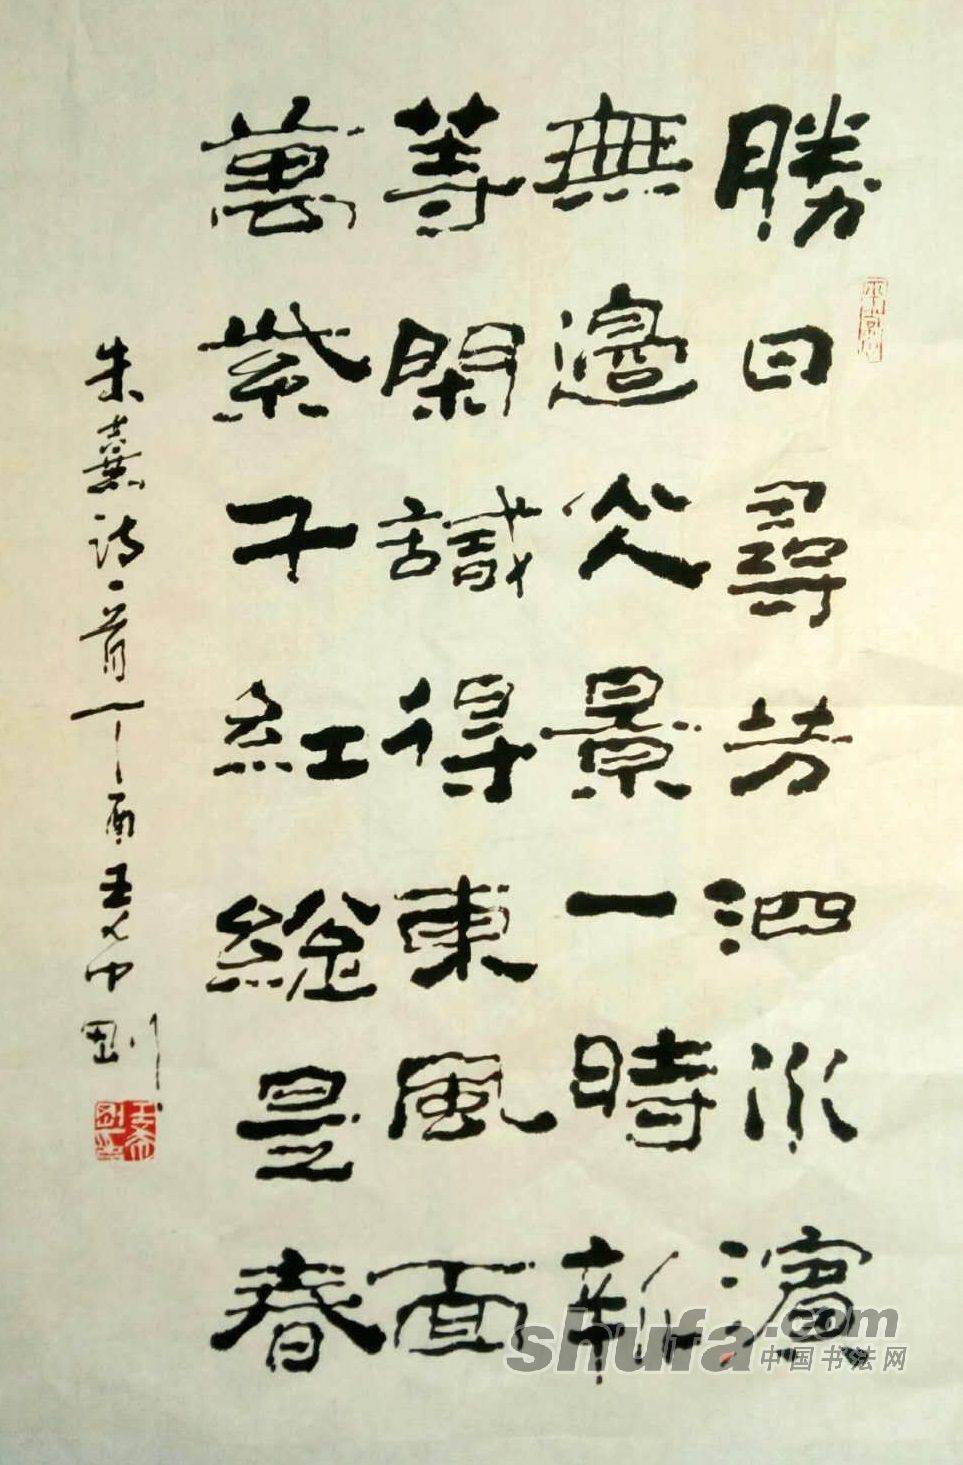 勝日尋芳泗水濱
無邊光景一時新
等閑識得東風面
萬紫千紅總是春
朱熹詩一首丁酉王中剛
shufa.com
中国书法网